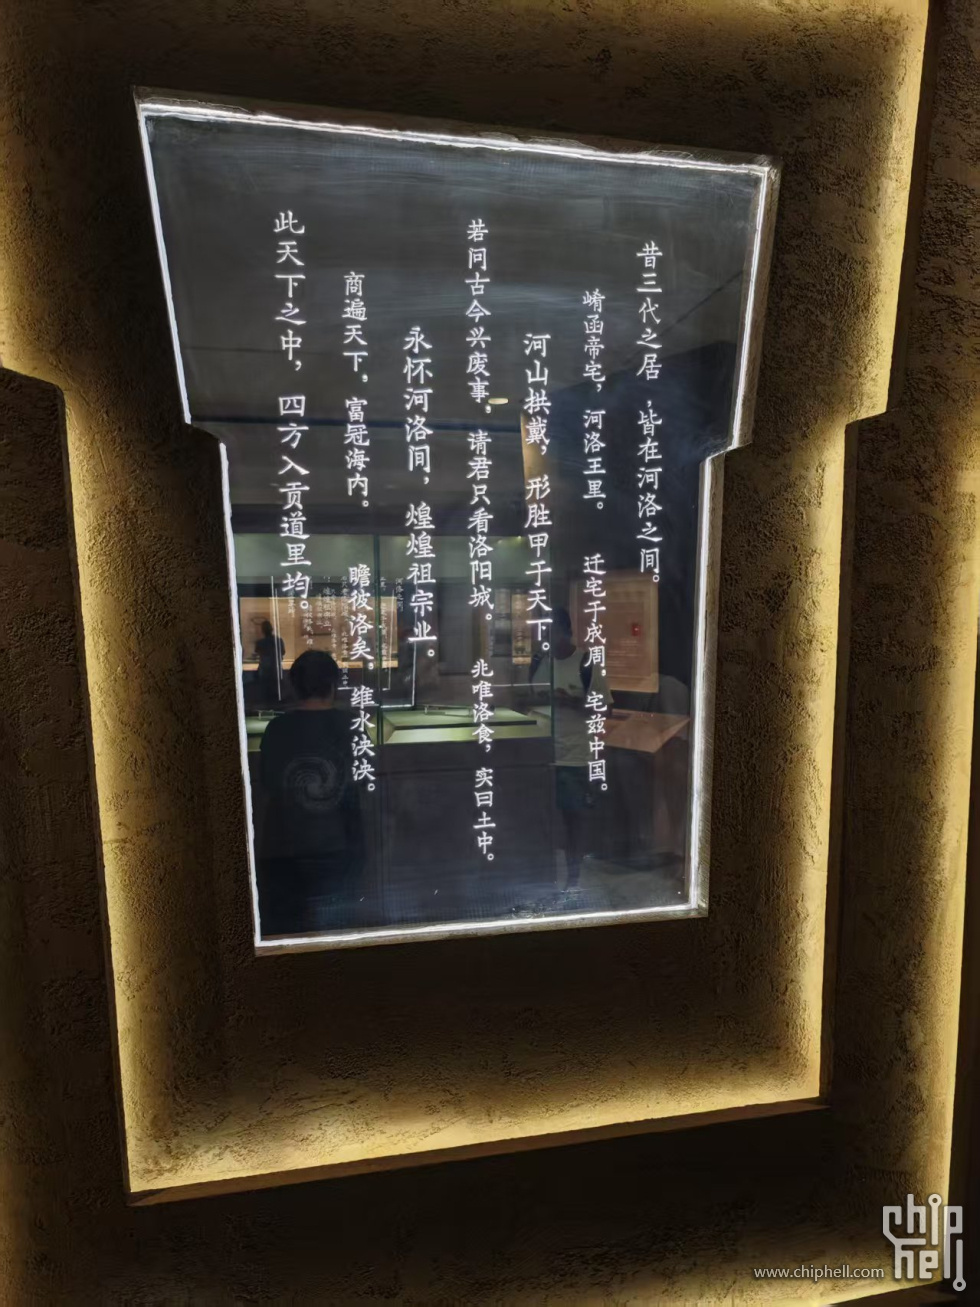 昔三代之居，皆在河洛之间。
崤函帝宅，河洛王里。
迁宅于成周，宅兹中国。
河山拱戴，形胜甲于天下。
若问古今兴废事，请君只看洛阳城。
兆唯洛食，实曰土中。
永怀河洛间，煌煌祖宗业。
商遍天下，富冠海内。
瞻彼洛矣，维水泱泱。
此天下之中，四方入贡道里均。
chip
hell
www.chiphell.com